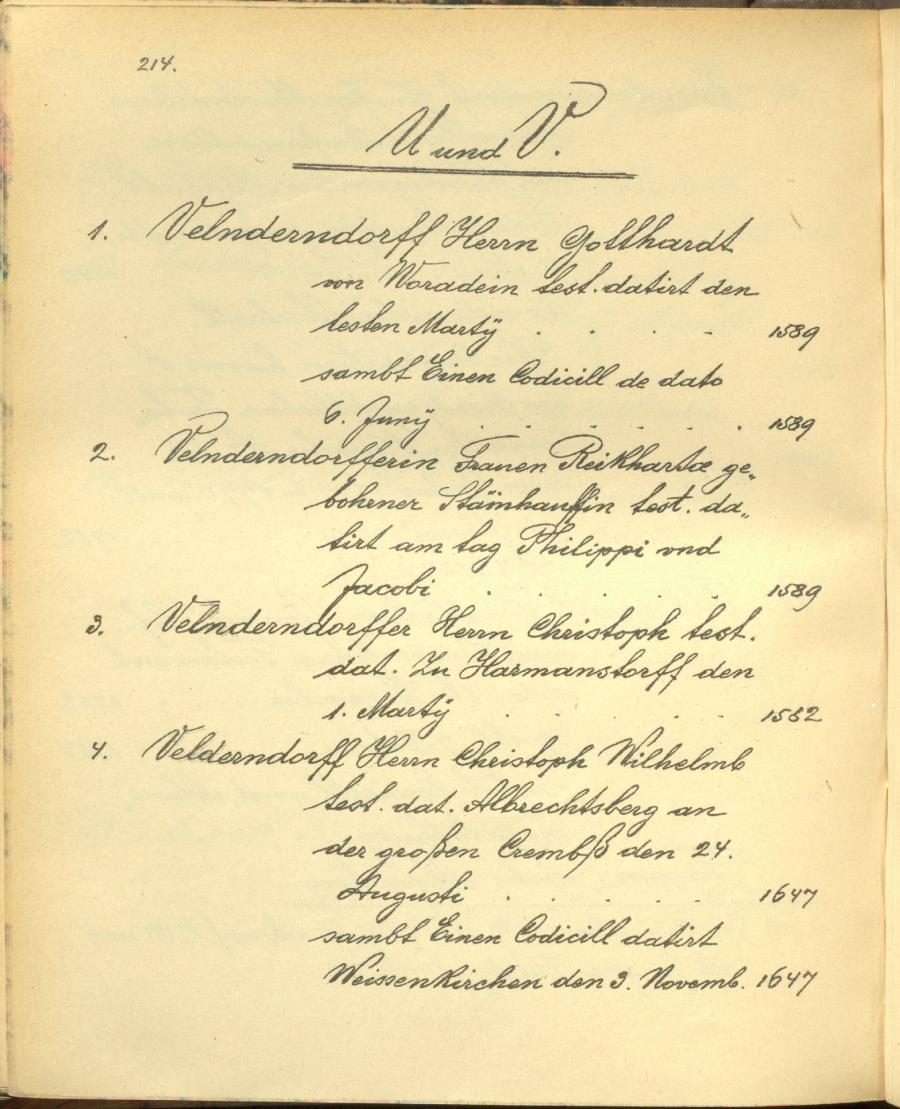 214.
U und V.
1. Velnderndorff Herrn Gotthardt
von Woradein test. datirt den
lesten Martÿ . . . . 1589
sambt Einen Codicill de dato
6. Junÿ . . . . . . 1589
2. Velnderndorfferin Frauen Reikhartæ ge„
bohrner Stämhauffin test. da„
tirt am tag Philippi vnd
Jacobi . . . . . 1589
3. Velnderndorffer Herrn Christoph test.
dat. Zu Harmanstorff den
1. Martÿ . . . . . 1582
4. Velderndorff Herrn Christoph Wilhelmb
test. dat. Albrechtsberg an
der großen Crembß den 24.
Augusti . . . . . 1647
sambt Einen Codicill datirt
Weissenkirchen den 3. Novemb. 1647